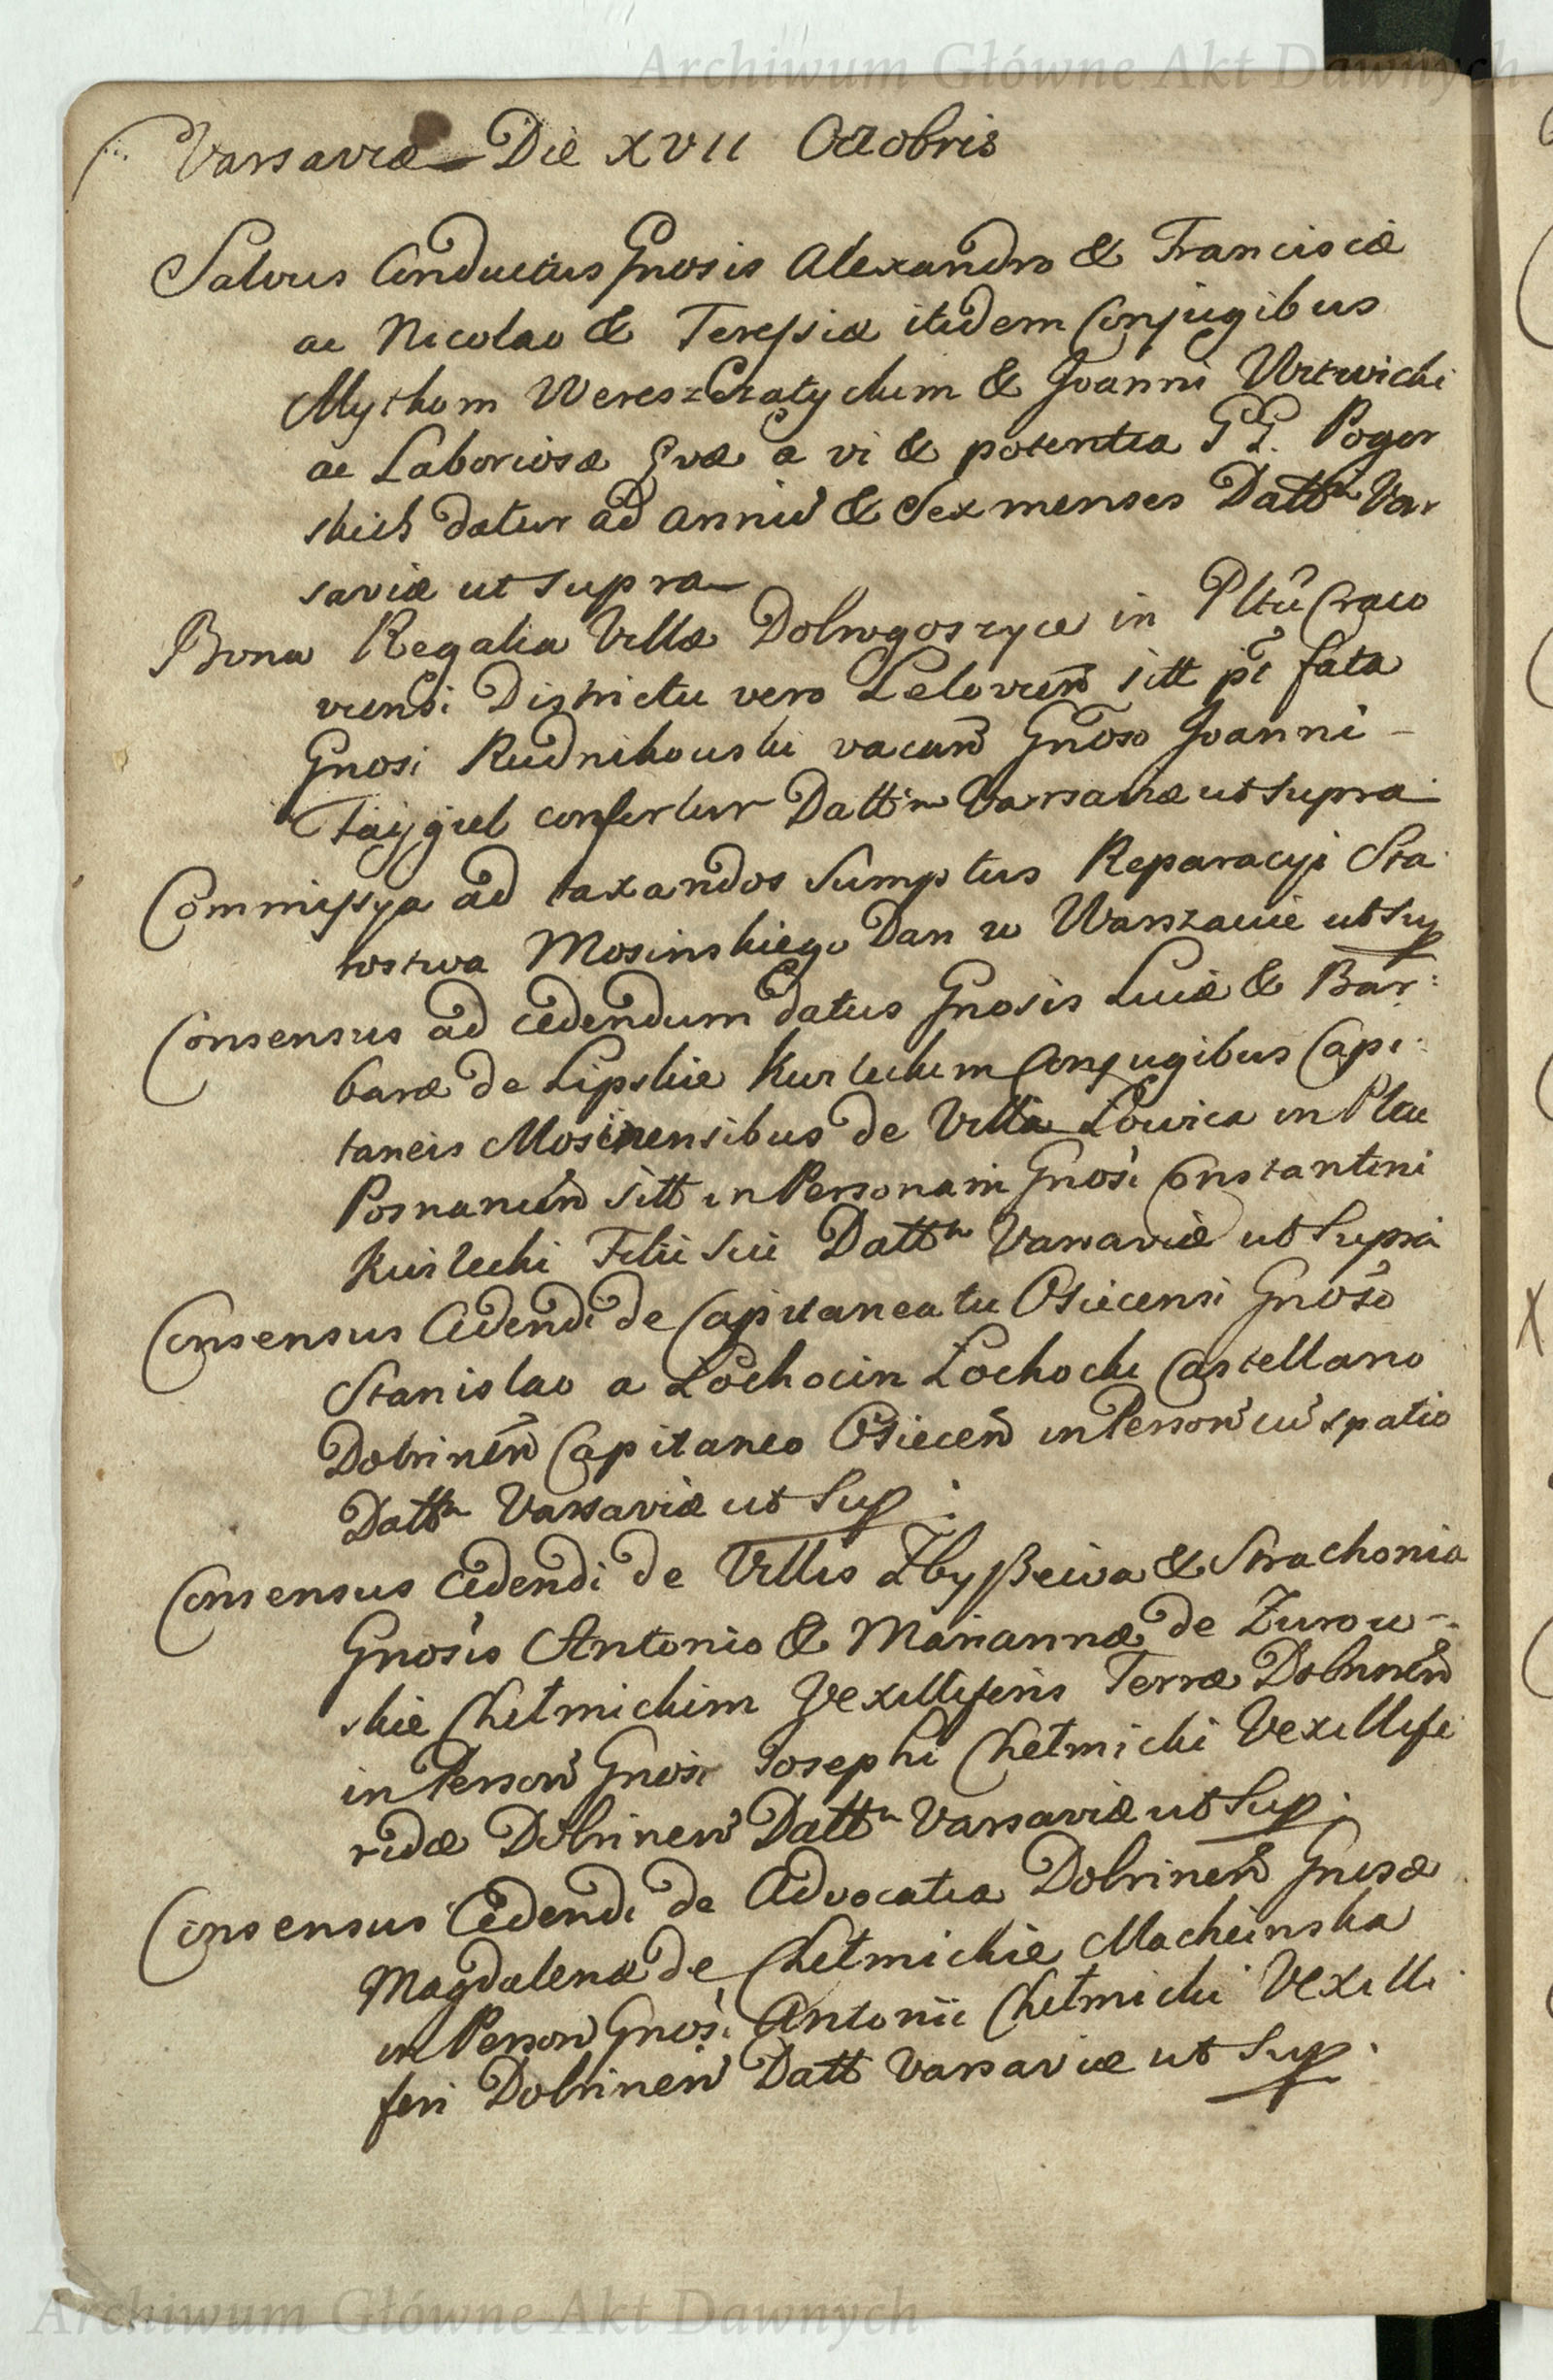 Archiwum Główne Akt Dawnych
Varsaviæ Die XVII Octobris
Salvus Conductus Gnosis Alexandro & Francisciæ
ac Nicolao & Teressiæ itidem Conjugibus
Mythom Wereszczatyckim & Joanni
ac Laboriosæ Evæ a vi & potentia GG. Pogor
skich datur ad annũ & Sex menses Dattm Var
saviæ ut supra
Bona Regalia Villæ Dobrogoszyce in Pltũ Craco
viensi Districtu vero Leloviēn sitt pt fata
Gnosi Rudnikouski vacan̄ Gnōso Joanni
confertur Dattm Varsaviæ ut supra
Commissya ad taxandos Sumptus Reparacyi Sta
rostwa Mosinskiego Dan w Warszawie ut sup
Consensus ad cedendum datus Gnosis Luciæ & Bar:
baræ de Lipskie Kurleckim Conjugibus Capi:
taneis Mosinensibus de Villa Łowica in Pltu
Posnaniēn sitt in Personam Gnosi Constantini
Kurlecki Filii sui Dattm Varsaviæ ut Supra
Consensus Cedendi de Capitaneatu Osiecensi Gnōso
Stanislao a Łochocin Łochocki Castellano
Dobrinēn Capitaneo Osiecēn in Person̄ cũ spatio
Dattm Varsaviæ ut Sup:
Consensus Cedendi de Villis Zbyszewa & Strachonia
Gnosis Antonio & Mariannæ de Zurow-
skie Chełmickim Vexilliferis Terræ Dobrinēn
in Person̄ Gnosi Josephi Chełmicki Vexillife
ridæ Dobrinen̄ Dattm Varsaviæ ut Sup:
Consensus Cedendi de Advocatia Dobrinēn Gnosæ
Magdalenæ de Chełmickie Macheinska
in Person̄ Gnosi Antonii Chełmicki Vexilli
feri Dobrinen̄ Datt Varsaviæ ut Sup.
Archiwum Główne Akt Dawnych